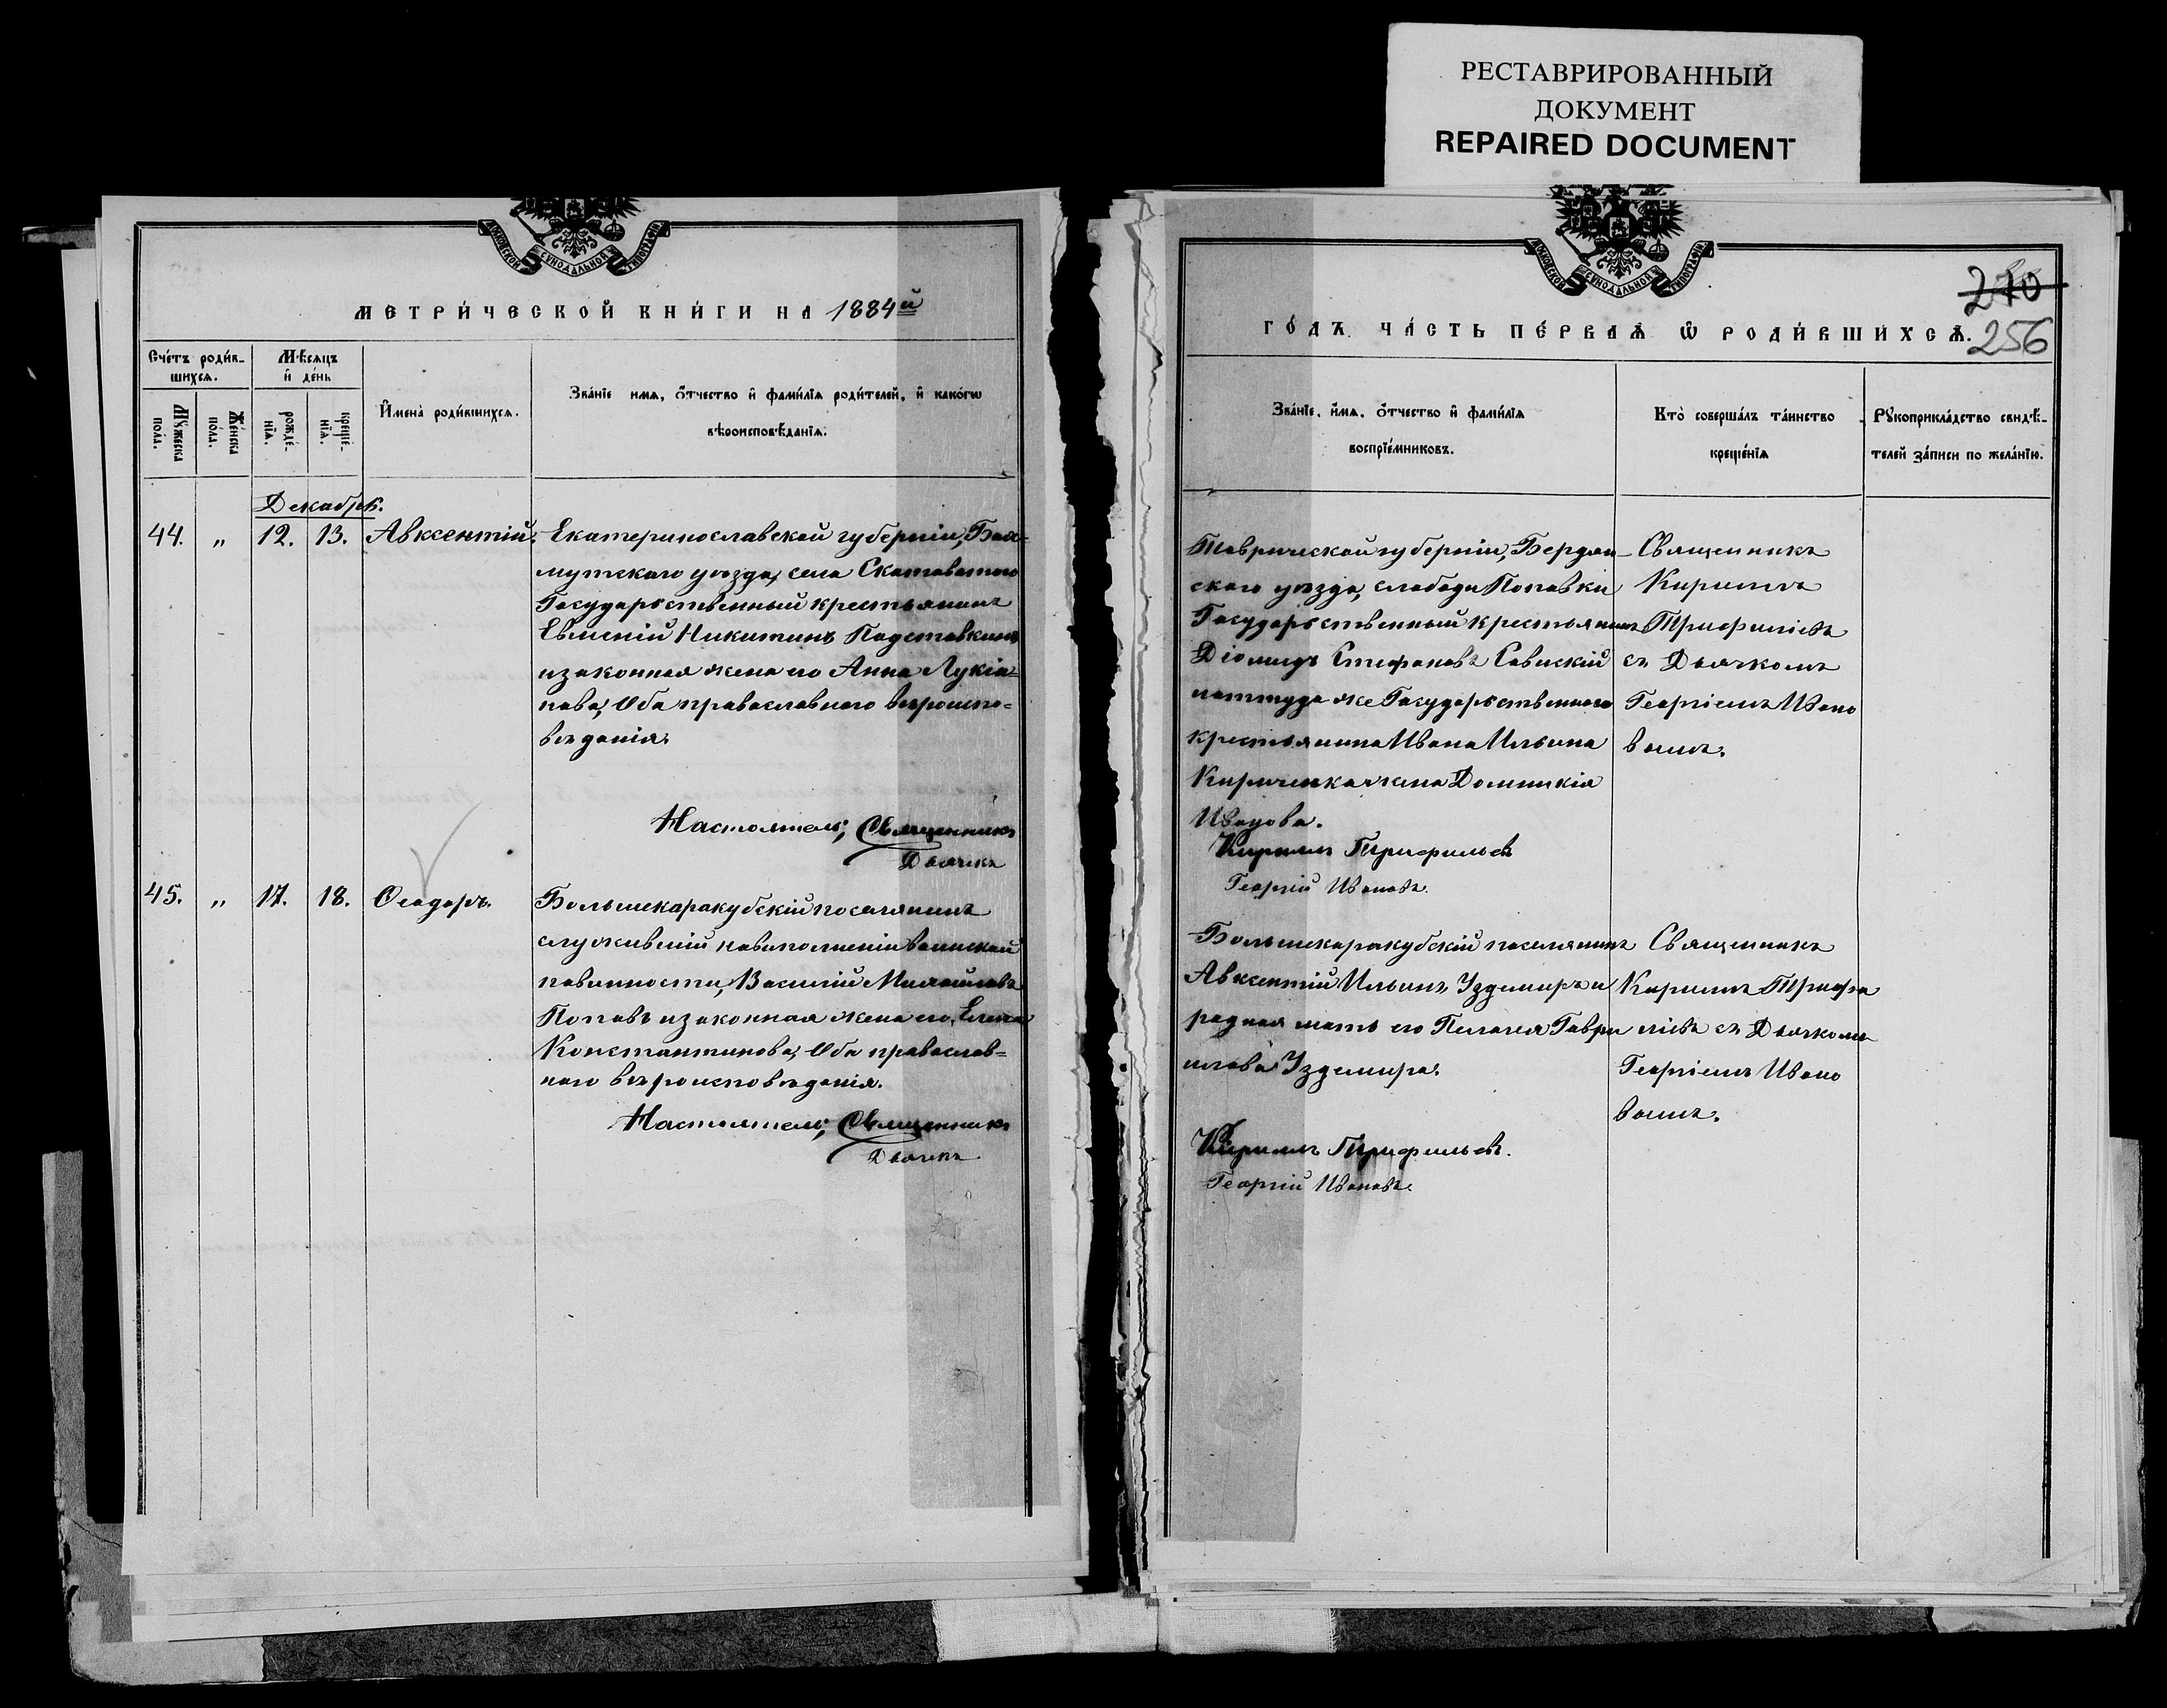 РЕСТАВРИРОВАННЫЙ
ДОКУМЕНТ
REPAIRED DOCUMENT
МОСКОВСКОЙ СѴНОДАЛЬНОЙ ТИПОГРАФІИ
МЕТРИ́ЧЕСКОЙ КНИ́ГИ НА 1884й
Сче́тъ роди́в-
шихсѧ.
Мꙋжеска
полъ.
Же́нска
полъ.
Мѣ́сѧцъ
и҆ де́нь
рожде́-
нїѧ.
креще́-
нїѧ.
И҆мена̀ роди́вшихсѧ.
Зва́нїе имѧ, ѻ҆́тчество и҆ фами́лїѧ роди́телей, и҆ како́гѡ
вѣроисповѣ́данїѧ.
Декабрь.
44. „ 12. 13. Авксентій.
Екатеринославской губерніи, Бах-
мутскаго уѣзда, села Скотоватаго
Государственный крестьянинъ
Евменій Никитинъ Подставкинъ
и законная жена его Анна Лукіа-
нова, Оба православнаго вѣроиспо-
вѣданія.
Настоятель, Священникъ
Дьячекъ
45. „ 17. 18. Ѳеодоръ.
Большекаракубскій поселянинъ
служившій по выполненіи воинской
повинности, Василій Михайловъ
Поповъ и законная жена его Елена
Константинова, Оба православ-
наго вѣроисповѣданія.
Настоятель, Священникъ
Дьячекъ
МОСКОВСКОЙ СѴНОДАЛЬНОЙ ТИПОГРАФІИ
270
256
ГО́ДЪ ЧА́СТЬ ПЕ́РВАѦ Ѡ҆ РОДИ́ВШИХСѦ.
Зва́нїе, и҆́мѧ, ѻ҆́тчество и҆ фами́лїѧ
воспрїе́мниковъ.
Кто̀ соверша́лъ та́инство
креще́нїѧ
Рꙋкоприкла́дство свидѣ́-
телей за́писи по жела́нїю.
Таврической губерніи, Бердян-
скаго уѣзда, слободы Поповки
Государственный крестьянинъ
Діомидъ Стефановъ Савискій
и оттуда же Государственнаго
крестьянина Ивана Ильина
Кириченка жена Домникія
Иванова.
Кириллъ Трифильевъ
Георгій Ивановъ.
Священникъ
Кириллъ
Трифиліевъ
съ Дьячкомъ
Георгіемъ Ивано
вымъ.
Большекаракубскій поселянинъ
Авксентій Ильинъ Уздемиръ и
родная мать его Пелагея Гаври
илова Уздемира.
Кириллъ Трифильевъ.
Георгій Ивановъ.
Священникъ
Кириллъ Трифи
ліевъ съ Дьячкомъ
Георгіемъ Ивано
вымъ.